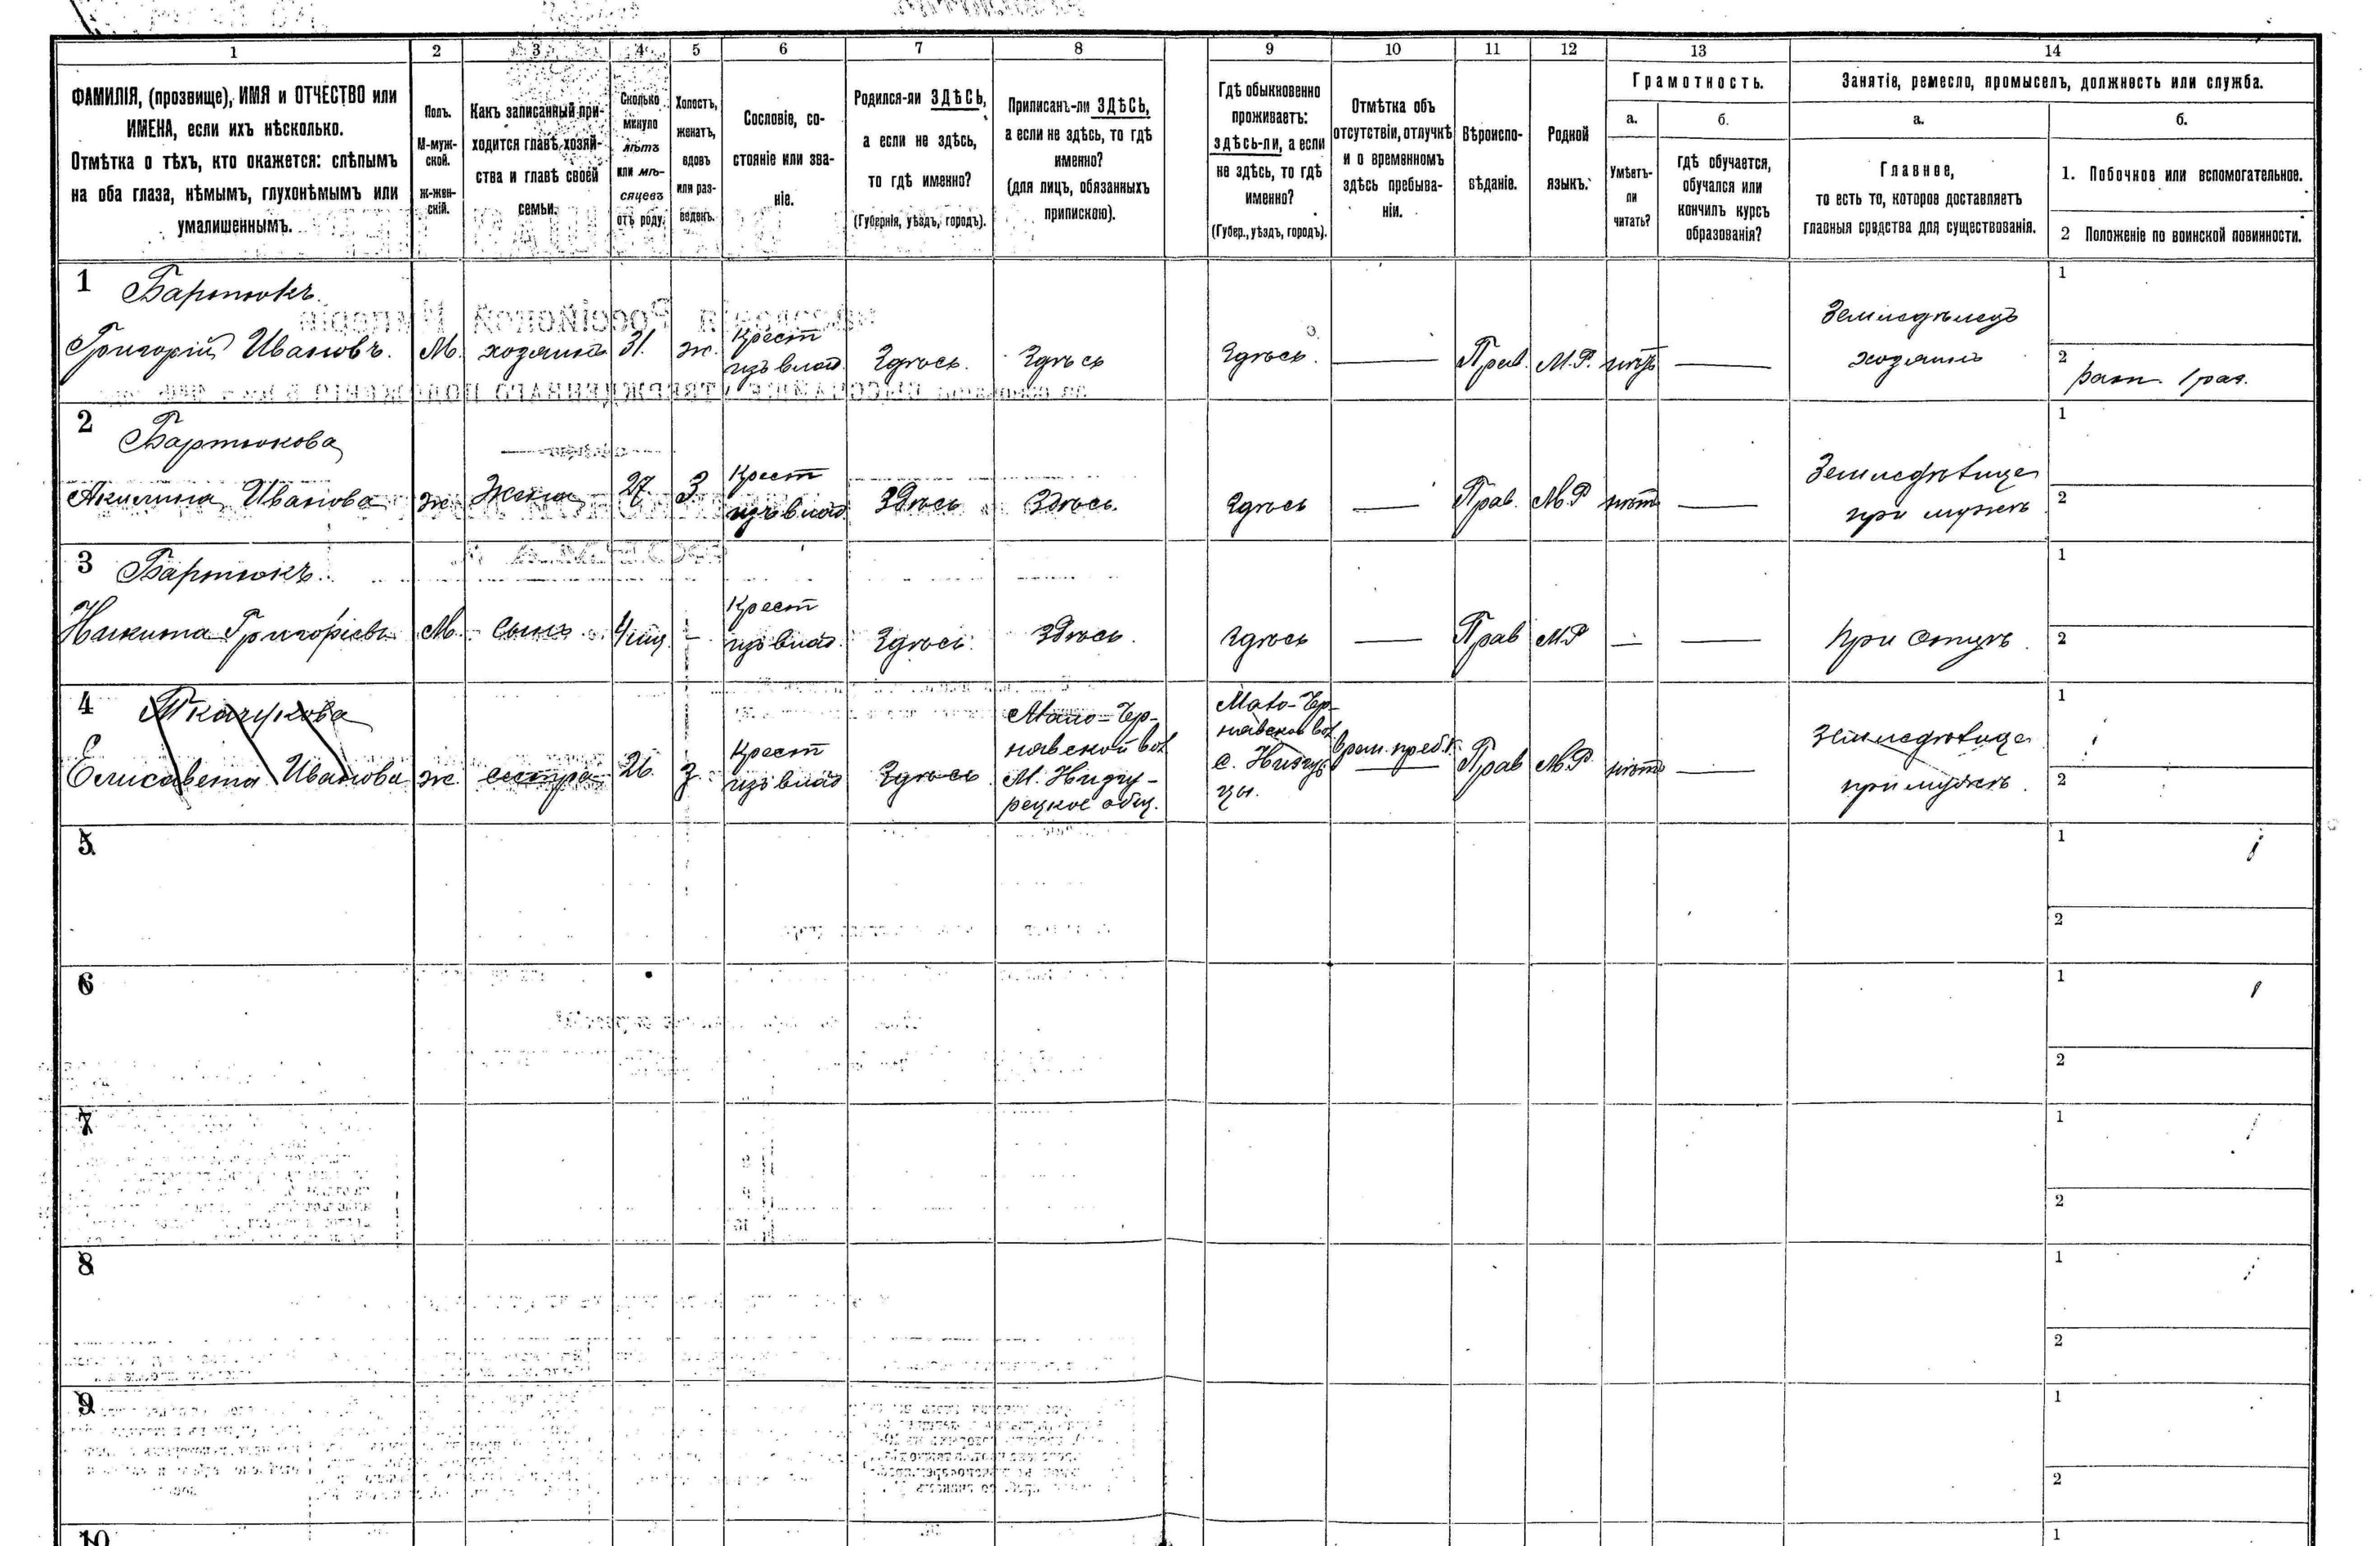 1 2 3 4 5 6 7 8 9 10 11 12 13 14
ФАМИЛІЯ, (прозвище), ИМЯ и ОТЧЕСТВО или
ИМЕНА, если ихъ нѣсколько.
Отмѣтка о тѣхъ, кто окажется: слѣпымъ
на оба глаза, нѣмымъ, глухонѣмымъ или
умалишеннымъ.
Полъ.
М-муж-
ской.
Ж-жен-
скій.
Какъ записанный при-
ходится главѣ хозяй-
ства и главѣ своей
семьи.
Сколько
минуло
лѣтъ
или мѣ-
сяцевъ
отъ роду.
Холостъ,
женатъ,
вдовъ
или раз-
веденъ.
Сословіе, со-
стояніе или зва-
ніе.
Родился-ли ЗДѢСЬ,
а если не здѣсь,
то гдѣ именно?
(Губернія, уѣздъ, городъ).
Приписанъ-ли ЗДѢСЬ,
а если не здѣсь, то гдѣ
именно?
(для лицъ, обязанныхъ
припискою).
Гдѣ обыкновенно
проживаетъ:
здѣсь-ли, а если
не здѣсь, то гдѣ
именно?
(Губер., уѣздъ, городъ).
Отмѣтка объ
отсутствіи, отлучкѣ
и о временномъ
здѣсь пребыва-
ніи.
Вѣроиспо-
вѣданіе.
Родной
языкъ.
Грамотность.
а.
Умѣетъ-
ли
читать?
б.
гдѣ обучается,
обучался или
кончилъ курсъ
образованія?
Занятія, ремесло, промыселъ, должность или служба.
а.
Главное,
то есть то, которое доставляетъ
главныя средства для существованія.
б.
1. Побочное или вспомогательное.
2 Положеніе по воинской повинности.
1 Бартюкъ.
Григорій Ивановъ.
М.
хозяинъ
31.
ж.
Крест
изъ влад
Здѣсь.
Здѣсь
Здѣсь.
Прав.
М.Р.
нѣтъ
Земледѣлецъ
хозяинъ
1
2
рат. 1 раз.
2 Бартюкова
Акилина Иванова
ж
Жена
27
З
Крест
изъ влад
Здѣсь
Здѣсь.
Здѣсь
Прав.
М.Р
нѣтъ
при мужѣ
1
2
3 Бартюкъ.
Никита Григорьевъ
М.
Сынъ
Крест
изъ влад.
Здѣсь.
Здѣсь.
Здѣсь
Прав
М.Р
—
При Отцѣ.
1
2
4 Ткачукова
Елисавета Иванова
ж.
сестра
26
з.
Крест
изъ влад
Здѣсь
Мало-Чер-
навской вол
рецкое общ.
Мало-Чер-
цы.
врем. преб.
Прав
М.Р.
нѣтъ
при мужѣ.
1
2
5
1
2
6
1
2
7
1
2
8
1
2
9
1
2
10
1